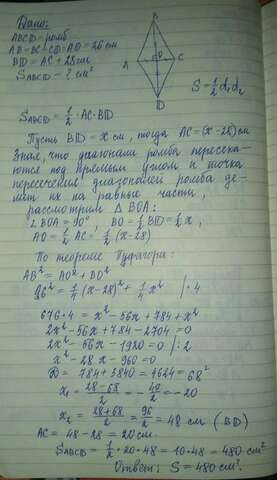 Дано:
ABCD = ромб
AB = BC = CD = AD = 26 см
BD = AC + 28 см
S ABCD = ? см²
B
A
O
C
D
S = ½ d₁ d₂
S ABCD = ½ · AC · BD
Пусть BD = x см, тогда AC = (x - 28) см
Зная, что диагонали ромба пересека-
ются под прямым углом и точка
пересечения диагоналей ромба де-
лит их на равные части,
рассмотрим △ BOA:
∠ BOA = 90° BO = ½ BD = ½ x,
AO = ½ AC = ½ (x - 28)
По теореме Пифагора:
AB² = AO² + BO²
26² = ¼ (x - 28)² + ¼ x² | · 4
676 · 4 = x² - 56x + 784 + x²
2x² - 56x + 784 - 2704 = 0
2x² - 56x - 1920 = 0 | : 2
x² - 28x - 960 = 0
D = 784 + 3840 = 4624 = 68²
x₁ = (28 - 68)/2 = - 40/2 = -20
x₂ = (28 + 68)/2 = 96/2 = 48 см (BD)
AC = 48 - 28 = 20 см
S ABCD = ½ · 20 · 48 = 10 · 48 = 480 см²
Ответ: S = 480 см².